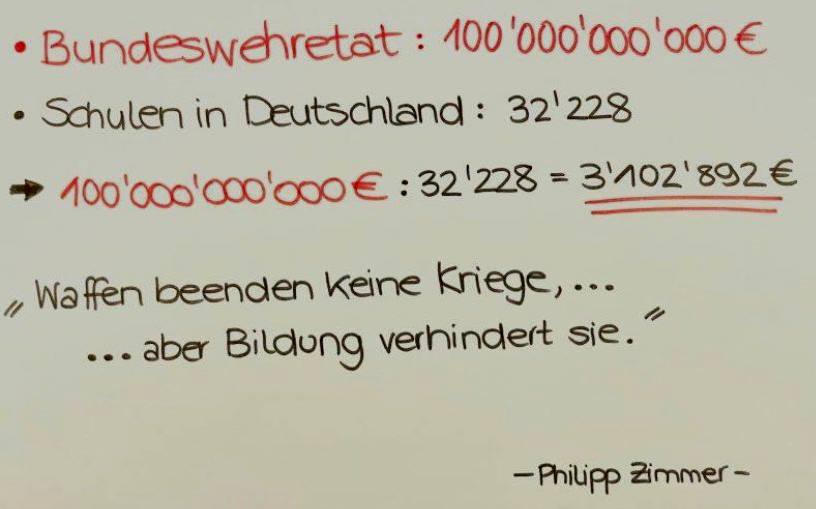 • Bundeswehretat: 100'000'000'000€
• Schulen in Deutschland: 32'228
➡ 100'000'000'000€ : 32'228 = 3'102'892€
„Waffen beenden keine Kriege,...
...aber Bildung verhindert sie."
- Philipp Zimmer -